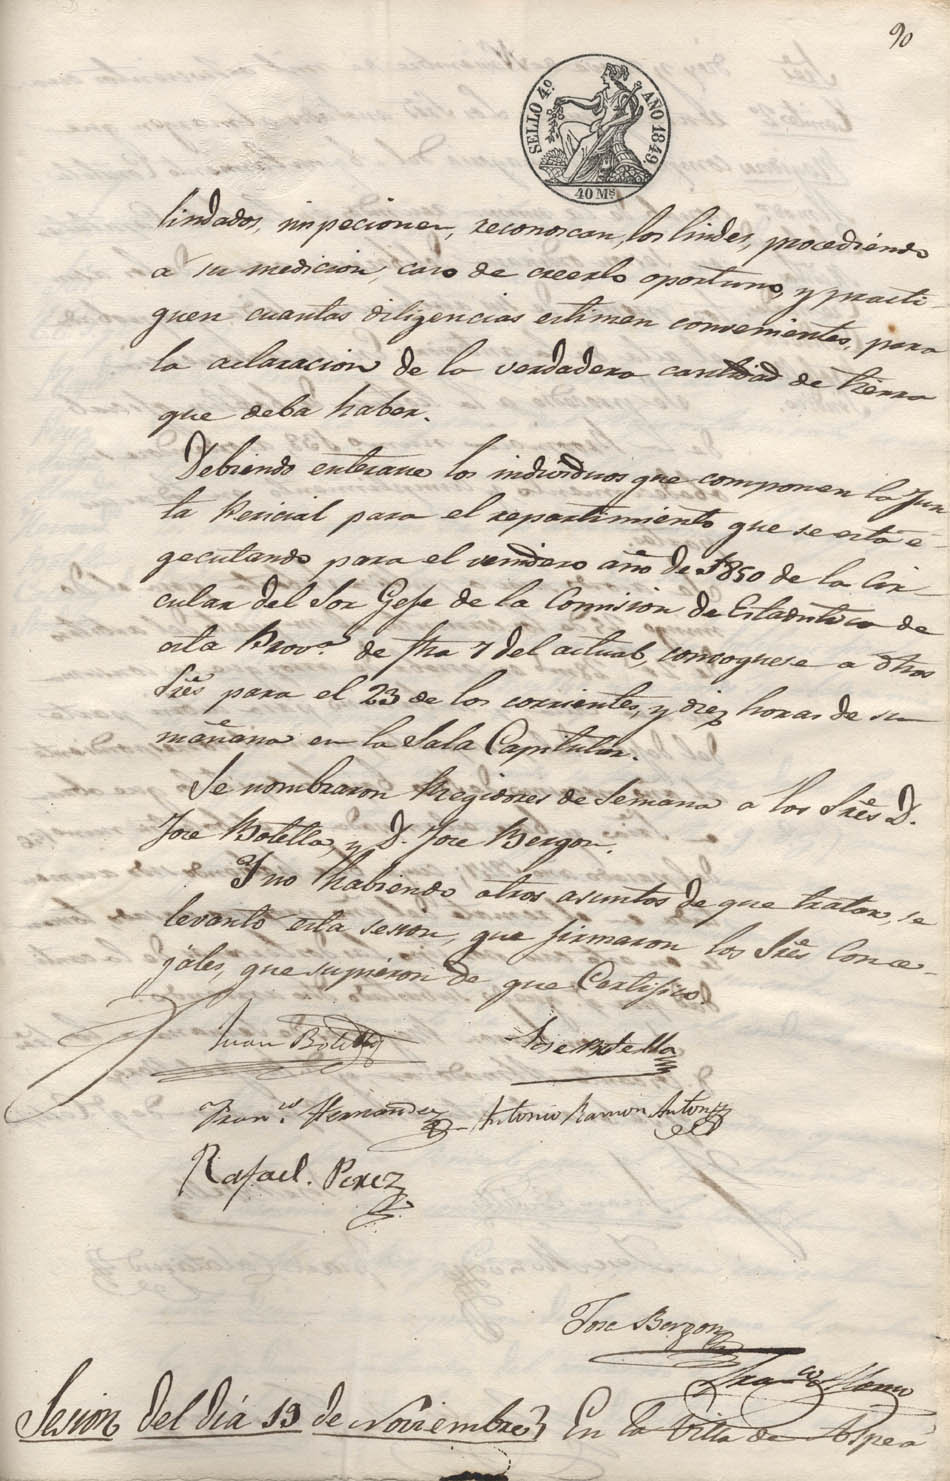 90
SELLO 4º AÑO 1849.
40 Ms
lindados, inspecionen, reconoscan los lindes, procediendo
á su medicion, caso de creerlo oportuno, y practi
quen cuantas diligencias estimen convenientes, para
la aclaracion de la verdadera cantidad de tierra
que deba haber.
Debiendo enterarse los individuos que componen la Jun
ta Pericial para el repartimiento que se está e-
gecutando para el venidero año de 1850 de la Cir-
cular del Sor Gefe de la Comision de Estadistica de
esta Prov.ª de fha 7 del actual, convoquese a dhos
Sres para el 23 de los corrientes, y diez horas de su
mañana en la Sala Capitular.
Se nombraron Regidores de Semana a los Sres D.
Jose Botella, y D. Jose Bergon.
Y no habiendo otros asuntos de que tratar, se
levantó esta sesion, que firmaron los Sres Conce-
jales, que supieron de que Certifico.
Juan Botella
Jose Botella
Fran.co Hernandez
Antonio Ramon Antón
Rafael. Perez
Jose Bergon
Fran.co
Sesion del dia 19 de Noviembre} En la Villa de Aspe á